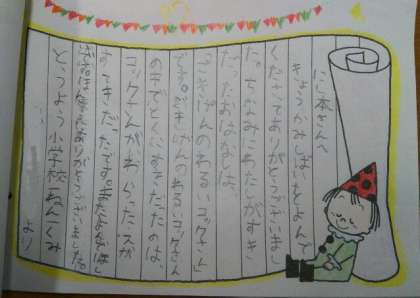 にし本さんへ
きょうかみしばいをよんで
くださってありがとうございまし
た。ちなみにわたしがすき
だったおはなしは、
「ごきげんのわるいコックさん」
です。ごきげんのわるいコックさん
のなかでとくにすきだったのは、
コックさんがわらったえが
すきだったです。
ありがとうございました。
とうよう小学校一ねん くみ
より